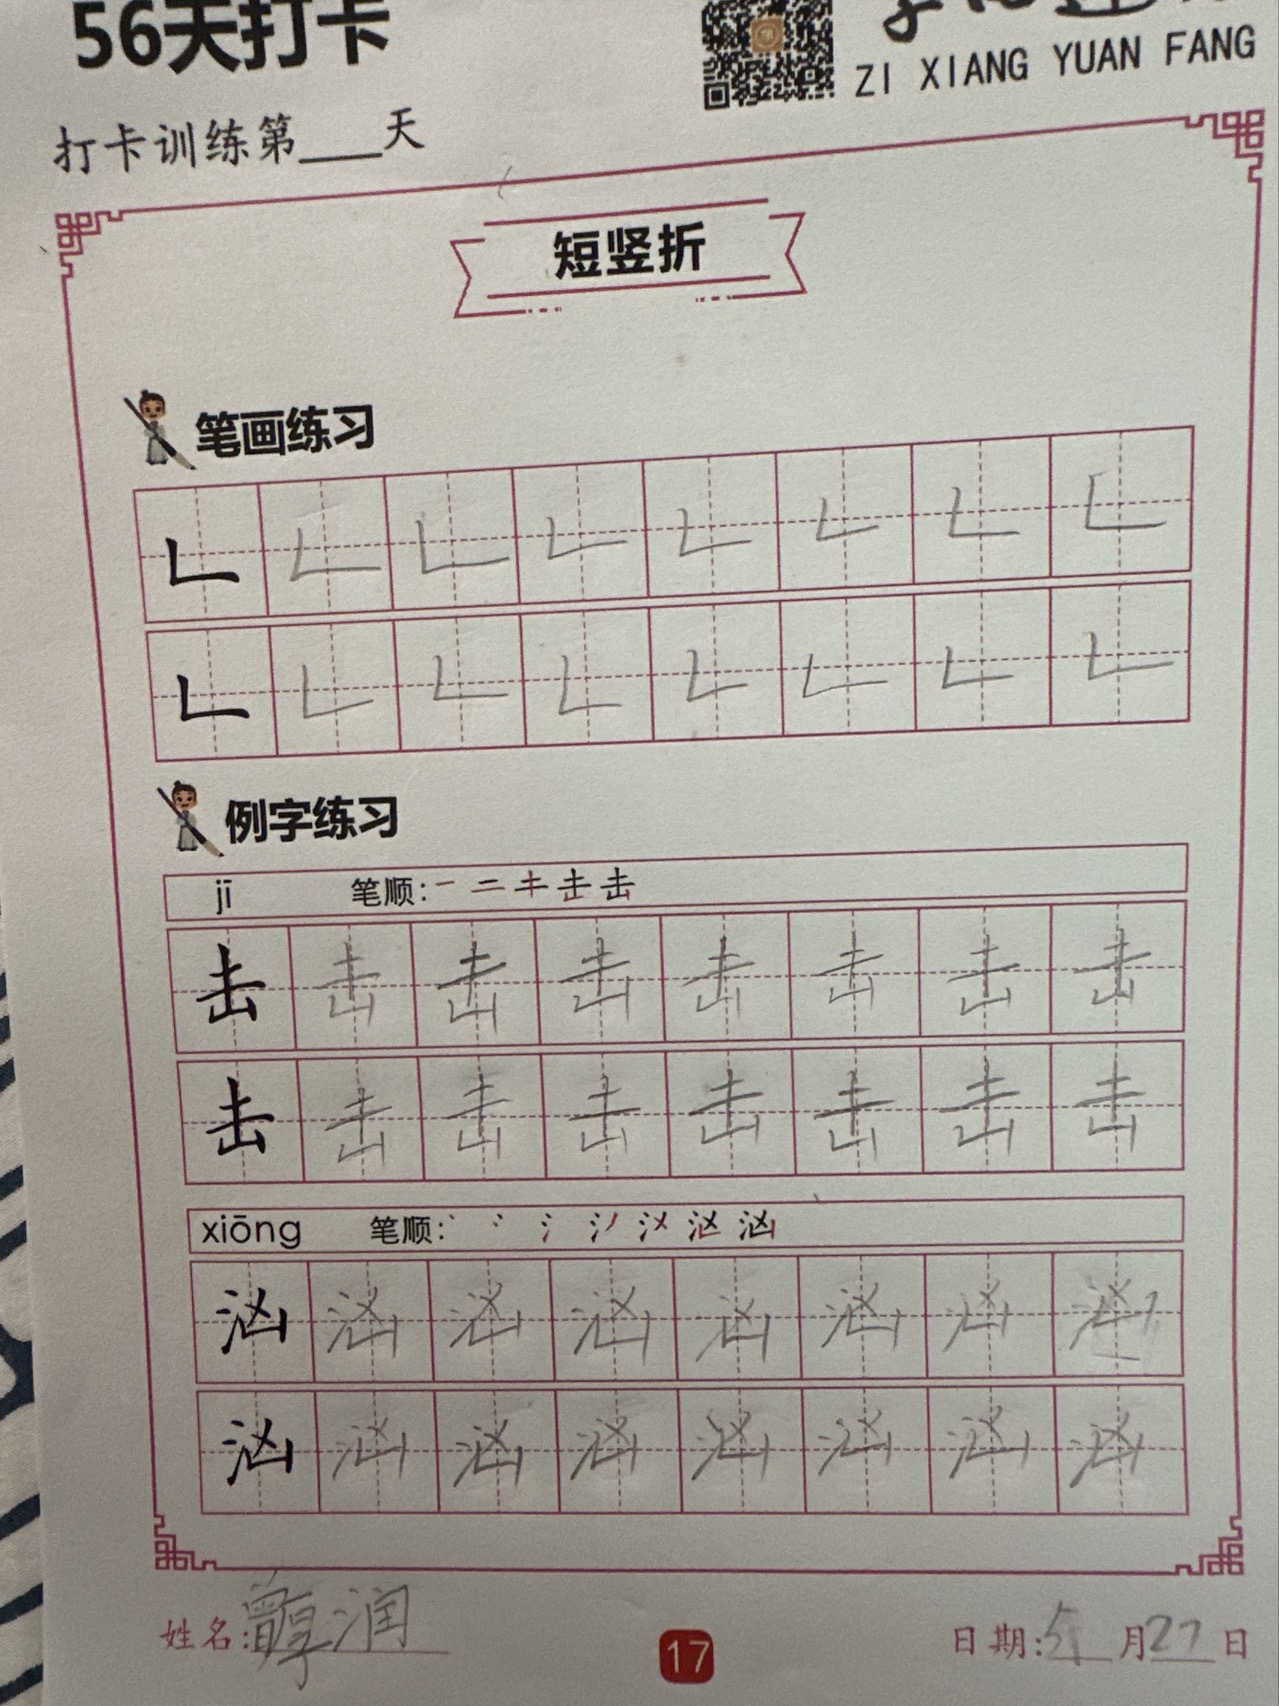 56天打卡
ZI XIANG YUAN FANG
打卡训练第___天
短竖折
笔画练习
𠃊 𠃊 𠃊 𠃊 𠃊 𠃊 𠃊 𠃊
𠃊 𠃊 𠃊 𠃊 𠃊 𠃊 𠃊 𠃊
例字练习
jī 笔顺:
击 击 击 击 击 击 击 击
击 击 击 击 击 击 击 击
xiōng 笔顺:
汹 汹 汹 汹 汹 汹 汹 汹
汹 汹 汹 汹 汹 汹 汹 汹
姓名: 润
17
日期:5月27日